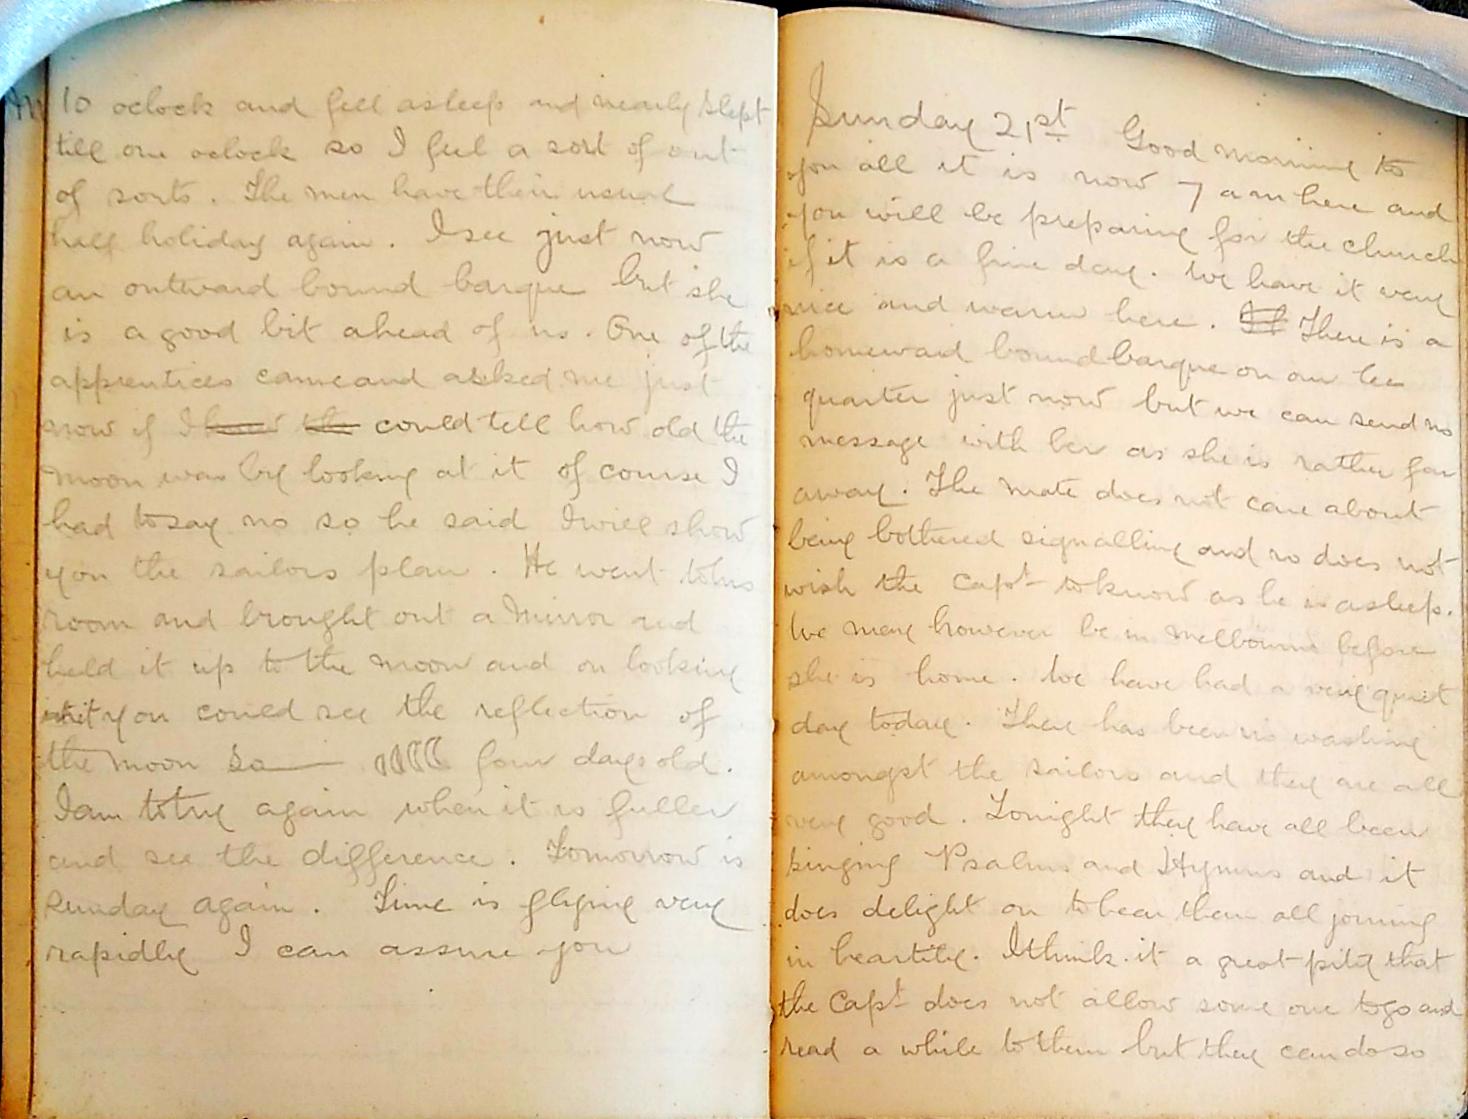 10 oclock and fell asleep and nearly slept
till one oclock so I feel a sort of out
of sorts. The men have their usual
half holiday again. I see just now
an outward bound barque but she
is a good bit ahead of us. One of the
apprentices came and asked me just
now if I could tell how old the
moon was by looking at it of course I
had to say no so he said I will show
you the sailors plan. He went to his
room and brought out a mirror and
held it up to the moon and on looking
you could see the reflection of
the moon so four days old.
I am to try again when it is fuller
and see the difference. Tomorrow is
Sunday again. Time is flying very
rapidly I can assure you
Sunday 21st Good morning to
you all it is now 7 am here and
you will be preparing for the church
if it is a fine day. We have it very
nice and warm here. There is a
homeward bound barque on our lee
quarter just now but we can send no
message with her as she is rather far
away. The mate does not care about
being bothered signalling and so does not
wish the Capt to know as he is asleep.
We may however be in Melbourne before
she is home. We have had a very quiet
day today. There has been no washing
amongst the sailors and they are all
very good. Tonight they have all been
singing Psalms and Hymns and it
does delight on to hear them all joining
in heartily. I think it a great pity that
the Capt does not allow some one to go and
read a while to them but they can do so